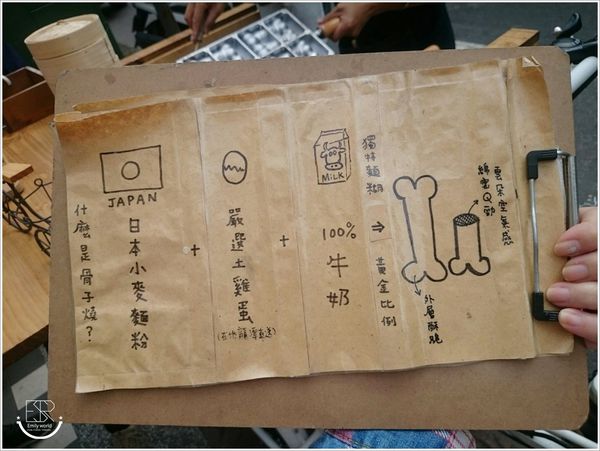 什麼是骨子燒？
JAPAN
日本小麥麵粉
+
嚴選土雞蛋
+
MiLK
100%
牛奶
獨特麵糊
⇒
黃金比例
雲朵空氣感
綿密Q韌
外層酥脆
Emily world